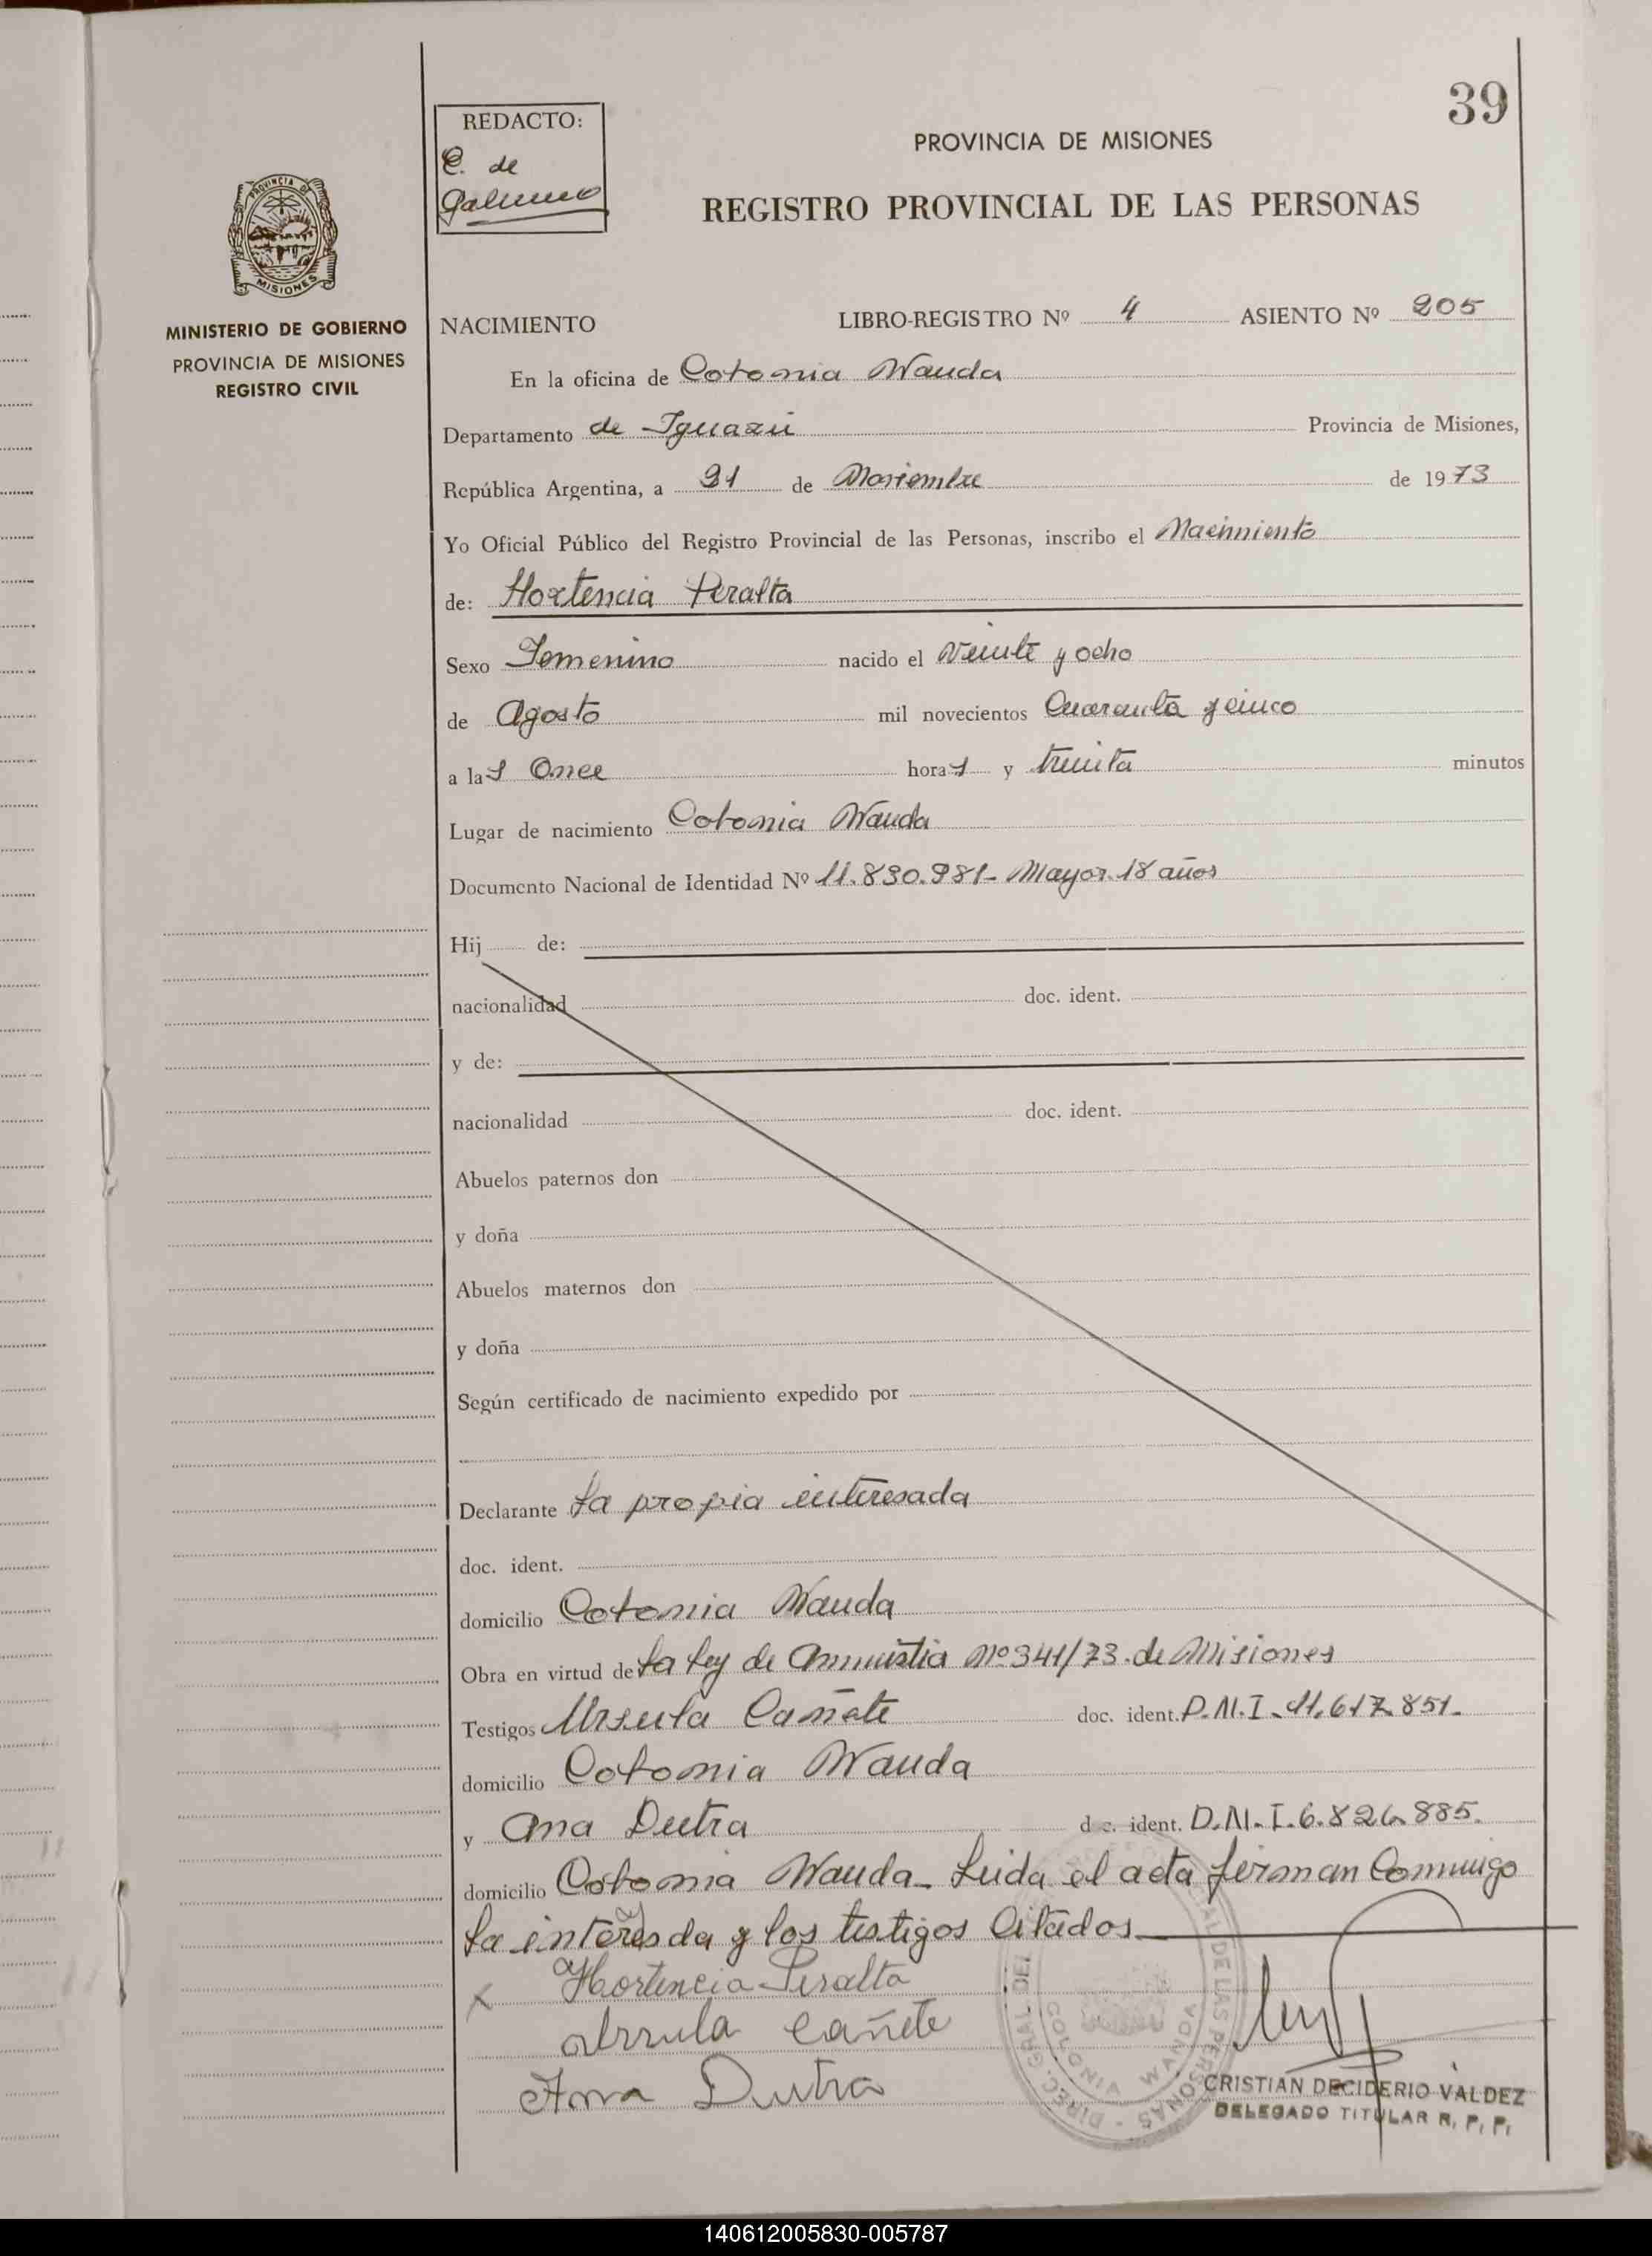 39
REDACTO:
C. de
Galeano
PROVINCIA DE MISIONES
REGISTRO PROVINCIAL DE LAS PERSONAS
PROVINCIA DE
MISIONES
MINISTERIO DE GOBIERNO
PROVINCIA DE MISIONES
REGISTRO CIVIL
NACIMIENTO LIBRO-REGISTRO Nº 4 ASIENTO Nº 205
En la oficina de Colonia Wanda
Departamento de Iguazú Provincia de Misiones,
República Argentina, a 21 de Noviembre de 1973
Yo Oficial Público del Registro Provincial de las Personas, inscribo el Nacimiento
de: Hortencia Peralta
Sexo Femenino nacido el veinte y ocho
de Agosto mil novecientos Cuarenta y cinco
a las Once horas y treinta minutos
Lugar de nacimiento Colonia Wanda
Documento Nacional de Identidad Nº 11.830.981- Mayor 18 años
Hij de:
nacionalidad doc. ident.
y de:
nacionalidad doc. ident.
Abuelos paternos don
y doña
Abuelos maternos don
y doña
Según certificado de nacimiento expedido por
Declarante La propia interesada
doc. ident.
domicilio Colonia Wanda
Obra en virtud de La Ley de Amnistia Nº 341/73. de Misiones
Testigos Ursula Cañete doc. ident. D.N.I. 11.617.851.
domicilio Colonia Wanda
y Ana Dutra doc. ident. D.N.I. 6.826.885.
domicilio Colonia Wanda_ Leida el acta firman Conmigo
La interesada y los testigos Citados
x Hortencia Peralta
Ursula Cañete
Ana Dutra
COLONIA WANDA
CRISTIAN DECIDERIO VALDEZ
DELEGADO TITULAR R. P. P.
140612005830-005787